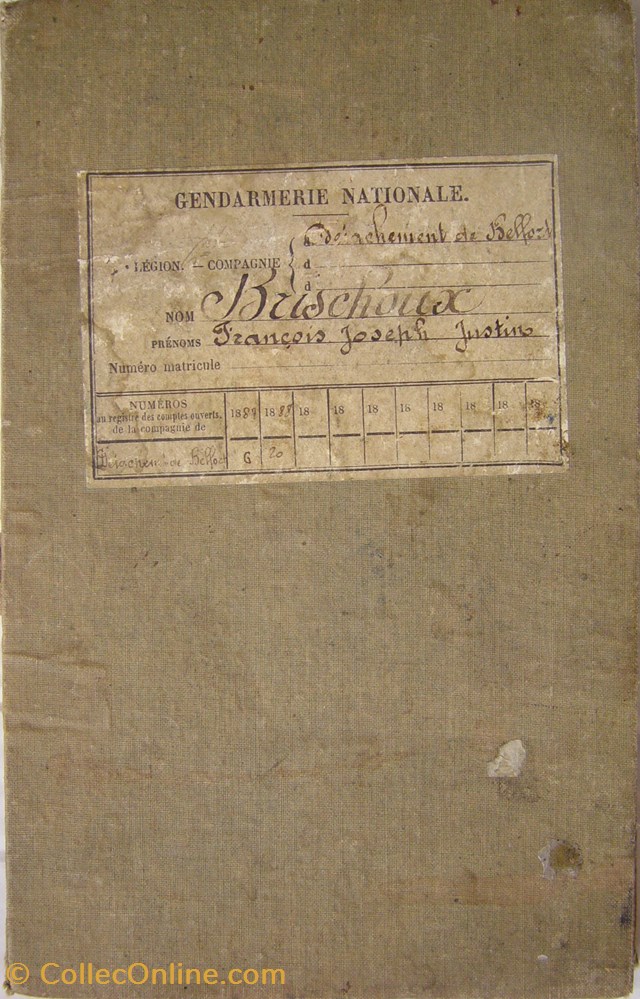 GENDARMERIE NATIONALE.
d Détachement de Belfort
LÉGION. — COMPAGNIE d
d
NOM Brischoux
PRÉNOMS François Joseph Justin
Numéro matricule
NUMÉROS
au registre des comptes ouverts,
de la compagnie de
18 18 88 18 18 18 18 18 18 18 18
Détachemt de Belfort G 20
© CollecOnline.com